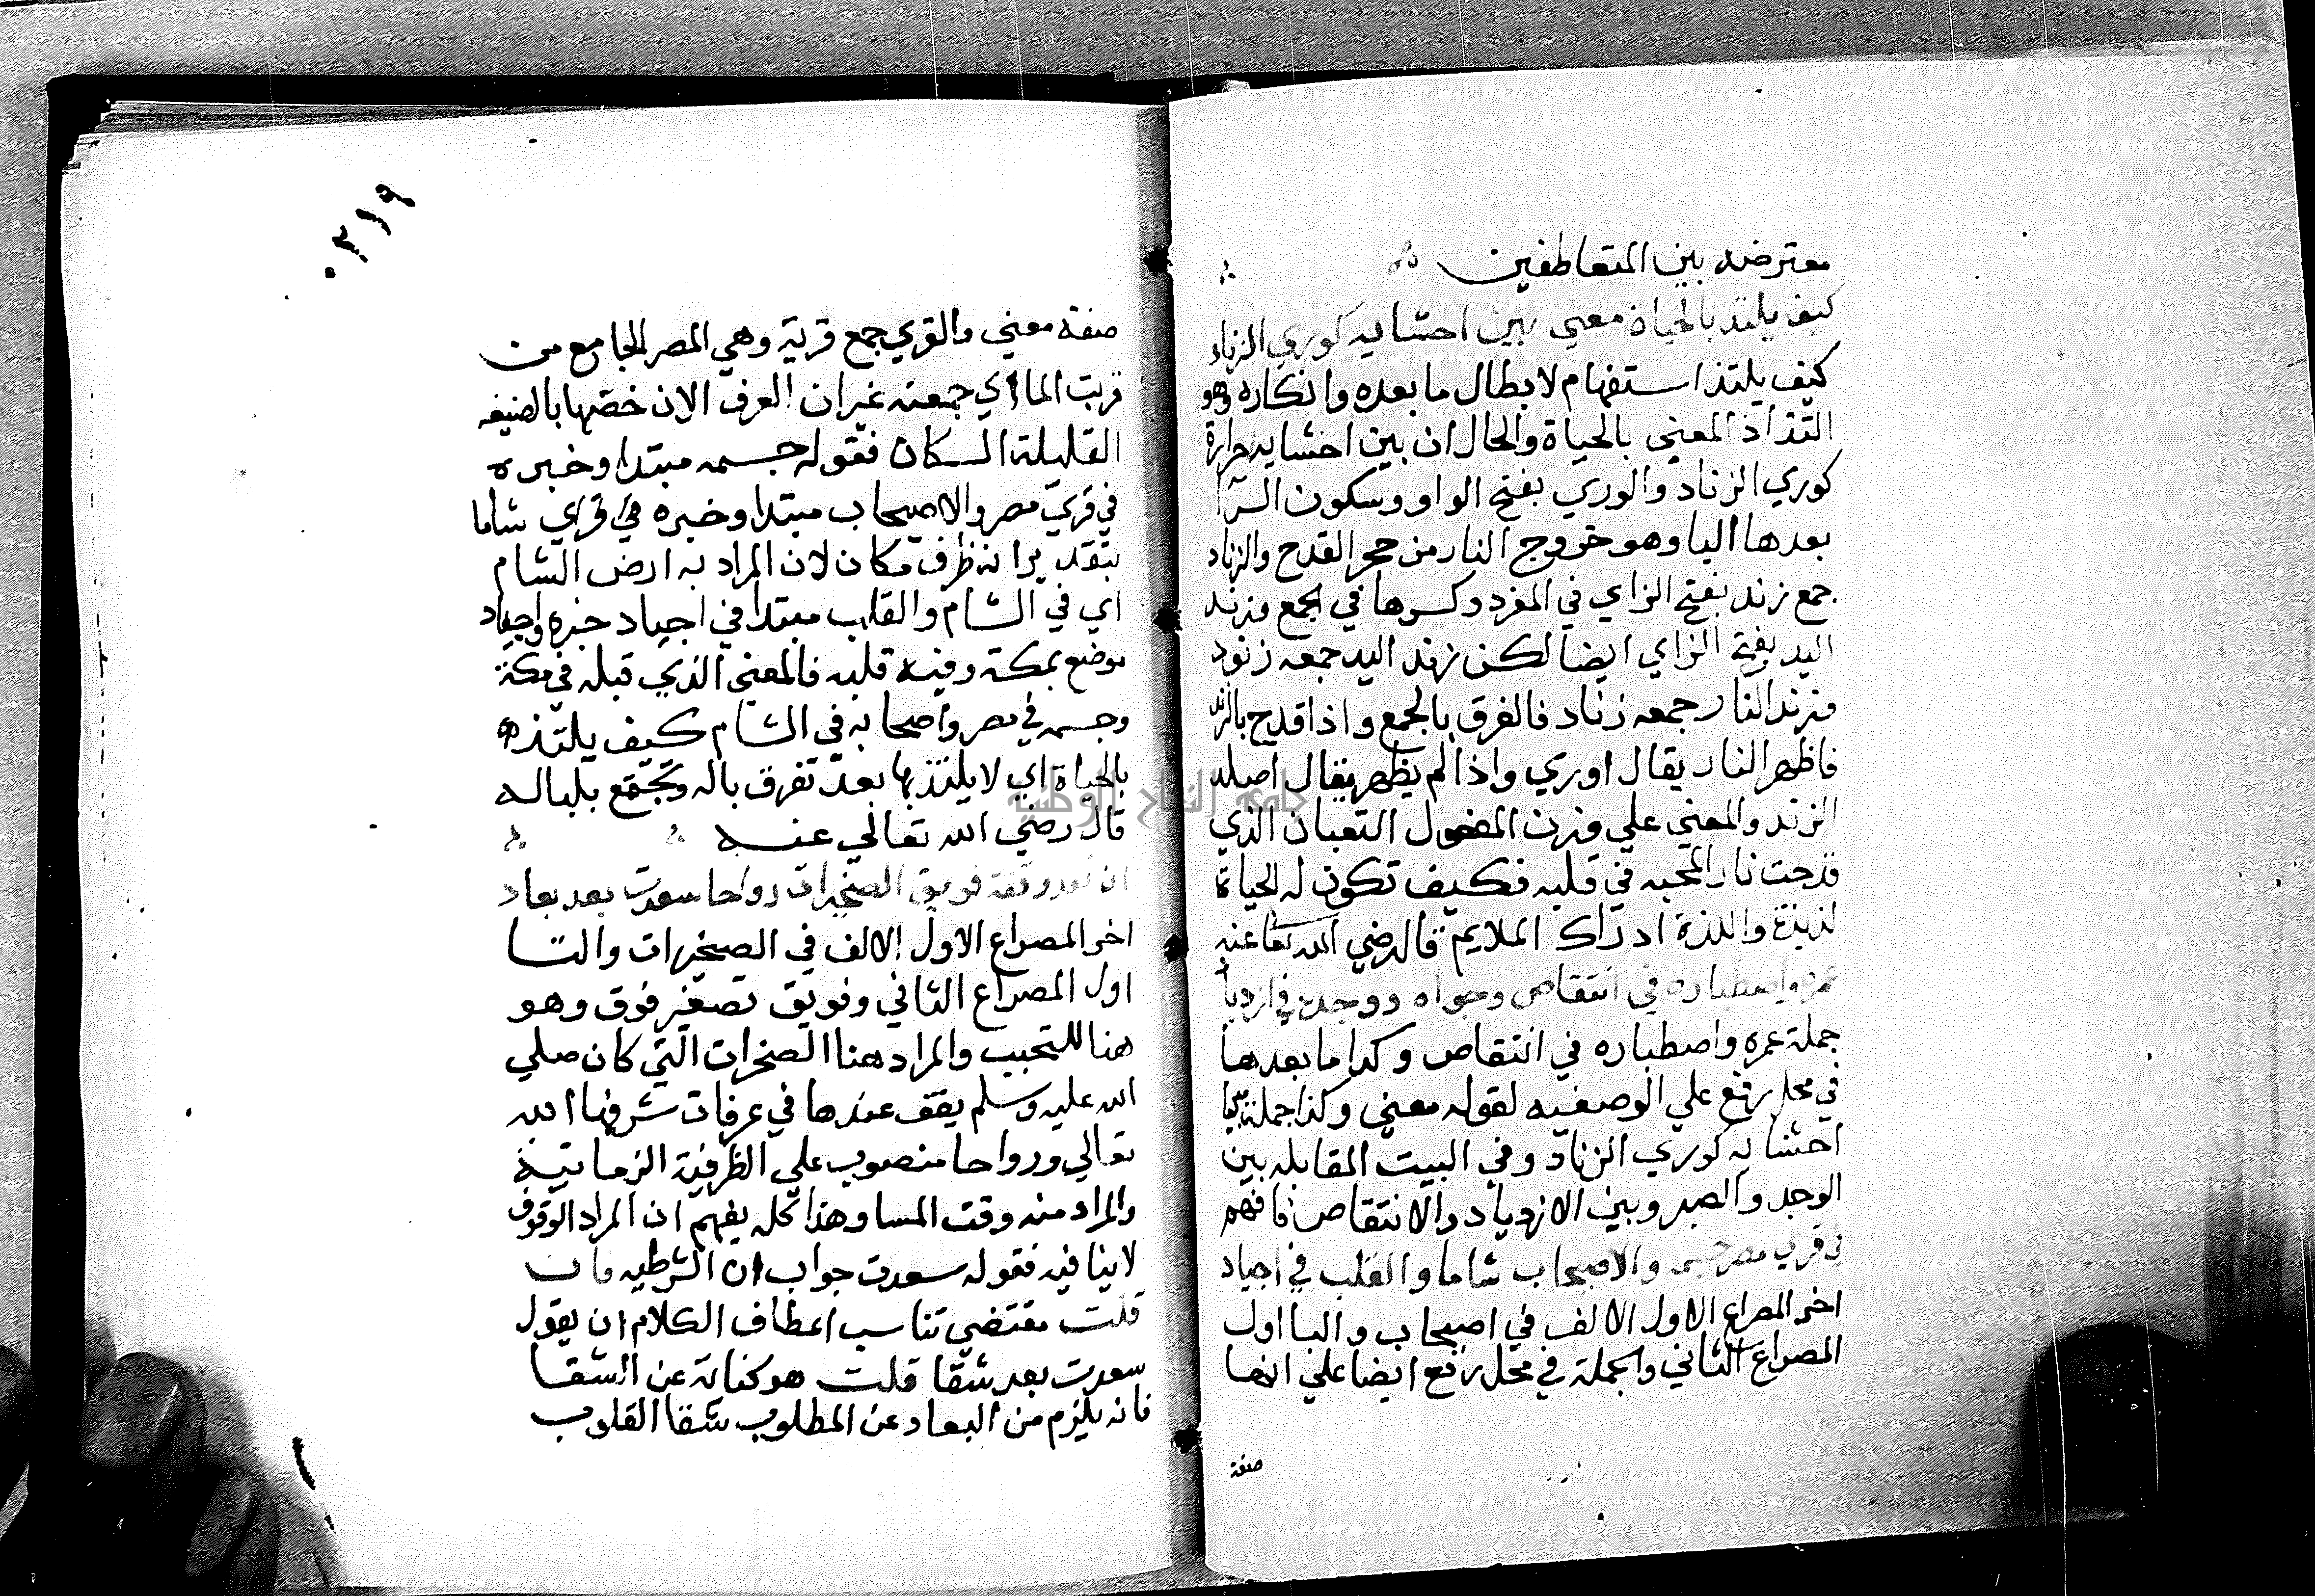 معترضه بين المتعاطفين
كيف يلتذ بالحياة معني بين احشايه كوري الزناد
كيف يلتذ استفهام لابطال ما بعده وانكاره وهو
التذاذ المعني بالحياة والحال ان بين احشايه حرارة
كوري الزناد والوري بفتح الواو وسكون الرا
بعدها اليا وهو خروج النار من حجر القدح والزناد
جمع زند بفتح الزاي في المفرد وكسرها في الجمع وزند
اليد بفتح الزاي ايضا لكن زند اليد جمعه زنود
وزند النار جمعه زناد فالفرق بالجمع واذا قدح بالزند
فاظهر النار يقال اوري واذا لم يظهر يقال اصلد
الزند والمعني علي وزن المفعول التعبان الذي
قدحت نار المحبه في قلبه فكيف تكون له الحياة
لذيذة واللذة ادراك الملايم قال رضي الله تعا عنه
عمره واصطباره في انتقاص وجواه ووجده في ازدياد
جملة عمره واصطباره في انتقاص وكذا ما بعدها
في محل رفع علي الوصفيه لقوله معني وكذا جملة بين
احشايه كوري الزناد وفي البيت المقابله بين
الوجد والصبر وبين الازدياد والانتقاص فافهم
في قري مصر جسمه والاصيحاب شاما والقلب في اجياد
اخر المصراع الاول الالف في اصيحاب والبا اول
المصراع الثاني والجملة في محل رفع ايضا علي انها
صفة
٠٢١٩
صفة معني والقري جمع قرية وهي المصر الجامع من
قريت الما اي جمعته غير ان العرف الان خصها بالضيعه
القليلة السكان فقوله جسمه مبتدا وخبره
في قري مصر والاصيحاب مبتدا وخبره في قري شاما
بتقدير انه ظرف مكان لان المراد به ارض الشام
اي في الشام والقلب مبتدا في اجياد خبره واجياد
موضع بمكة وفيه قلبه فالمعني الذي قبله في مكة
وجسمه في مصر واصحابه في الشام كيف يلتذ
بالحياة اي لا يلتذ بها بعد تفرق باله وتجمع بلباله
قال رضي الله تعالي عنه
ان تعد وقفة فويق الصخيرات رواحا سعدت بعد بعاد
اخر المصراع الاول الالف في الصخيرات والتا
اول المصراع الثاني وفويق تصغير فوق وهو
هنا للتحبيب والمراد هنا الصخرات التي كان صلي
الله عليه وسلم يقف عندها في عرفات شرفها الله
تعالي ورواحا منصوب علي الظرفية الزمانية
والمراد منه وقت المسا وهذا كله يفهم ان المراد الوقوف
لاينافيه فقوله سعدت جواب ان الشرطيه فان
قلت مقتضي تناسب اعطاف الكلام ان يقول
سعدت بعد شقا قلت هو كناية عن الشقا
فانه يلزم من البعاد عن المطلوب شقا القلوب